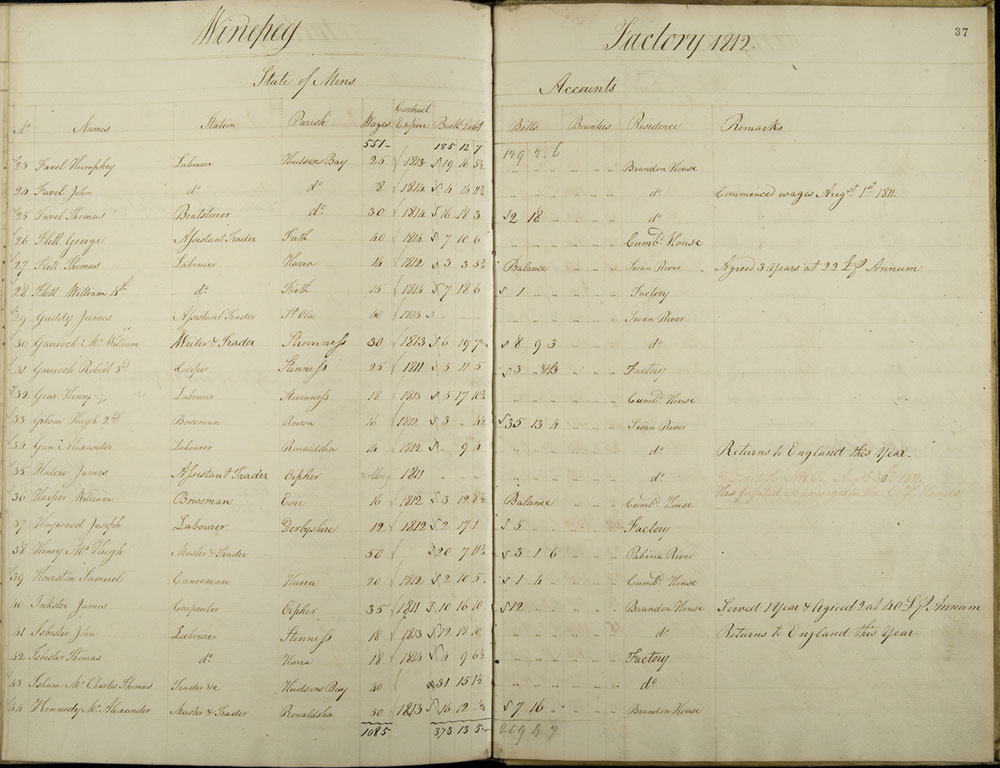 37
Winipeg Factory 1812.
State of Mens Accounts
No Names Station Parish Wages Contract Expire Book Debt Bills Bounties Residence Remarks
551 185 12 7 129 7 6
23 Favel Humphry Labourer Hudsons Bay 25 1813 19 16 5½ Brandon House
24 Favel John do do 8 1814 4 14 11½ do Commenced wages Augst 1st 1811.
25 Favel Thomas Boatsteerer do 30 1814 16 18 3 2 18 do
26 Flett George Assistant Trader Firth 40 1814 7 10 6 Cumbd House
27 Flett Thomas Labourer Harra 14 1812 3 3 5½ Balance Swan River Agreed 3 Years at 22 £ P Annum
28 Flett William 4th do Firth 15 1814 7 18 6 1 Factory
29 Gaddy James Assistant Trader St Ola 40 1813 Swan River
30 Garrioch Mr William Writer & Trader Stromness 30 1813 6 19 7 8 9 3 do
31 Garrioch Robert 3d Cooper Stenness 25 1811 5 11 5 3 Factory
32 Gear Henry Labourer Stromness 18 1813 5 17 10½ Cumbd House
33 Gibson Hugh 2nd Bowsman Rowsa 1812 3 4½ 35 13 4 Swan River
34 Gun Alexander Labourer Ronaldsha 14 1812 9 4 do Returns to England this Year.
35 Halcro James Assistant Trader Orpher 1811 do N.W.Co. Augst 30th 1811.
Has forfeited
36 Harper William Bowsman Evie 16 1812 3 12 8½ Balance Cumbd House
37 Haywood Joseph Labourer Derbyshire 12 1812 2 17 1 5 Factory
38 Heney Mr Hugh Master & Trader 50 20 7 11½ 3 1 6 Pabina River
39 Hourston Samuel Canoeman Harra 20 1812 2 10 5 1 4 Cumbd House
40 Inkster James Carpenter Orpher 35 1811 10 16 10 12 Brandon House Served 1 Year & Agreed 2 at 40 £ P Annum
41 Isbester John Labourer Stenness 18 1813 12 18 10 do Returns to England this Year
42 Isbester Thomas do Harra 18 1814 4 9 6½ Factory
43 Isham Mr Charles Thomas Trader &c Hudsons Bay 40 31 15 1½ do
44 Kennedy Mr Alexander Master & Trader Ronaldsha 50 1813 16 12 7 16 Brandon House
1085 373 13 5 209 4 7